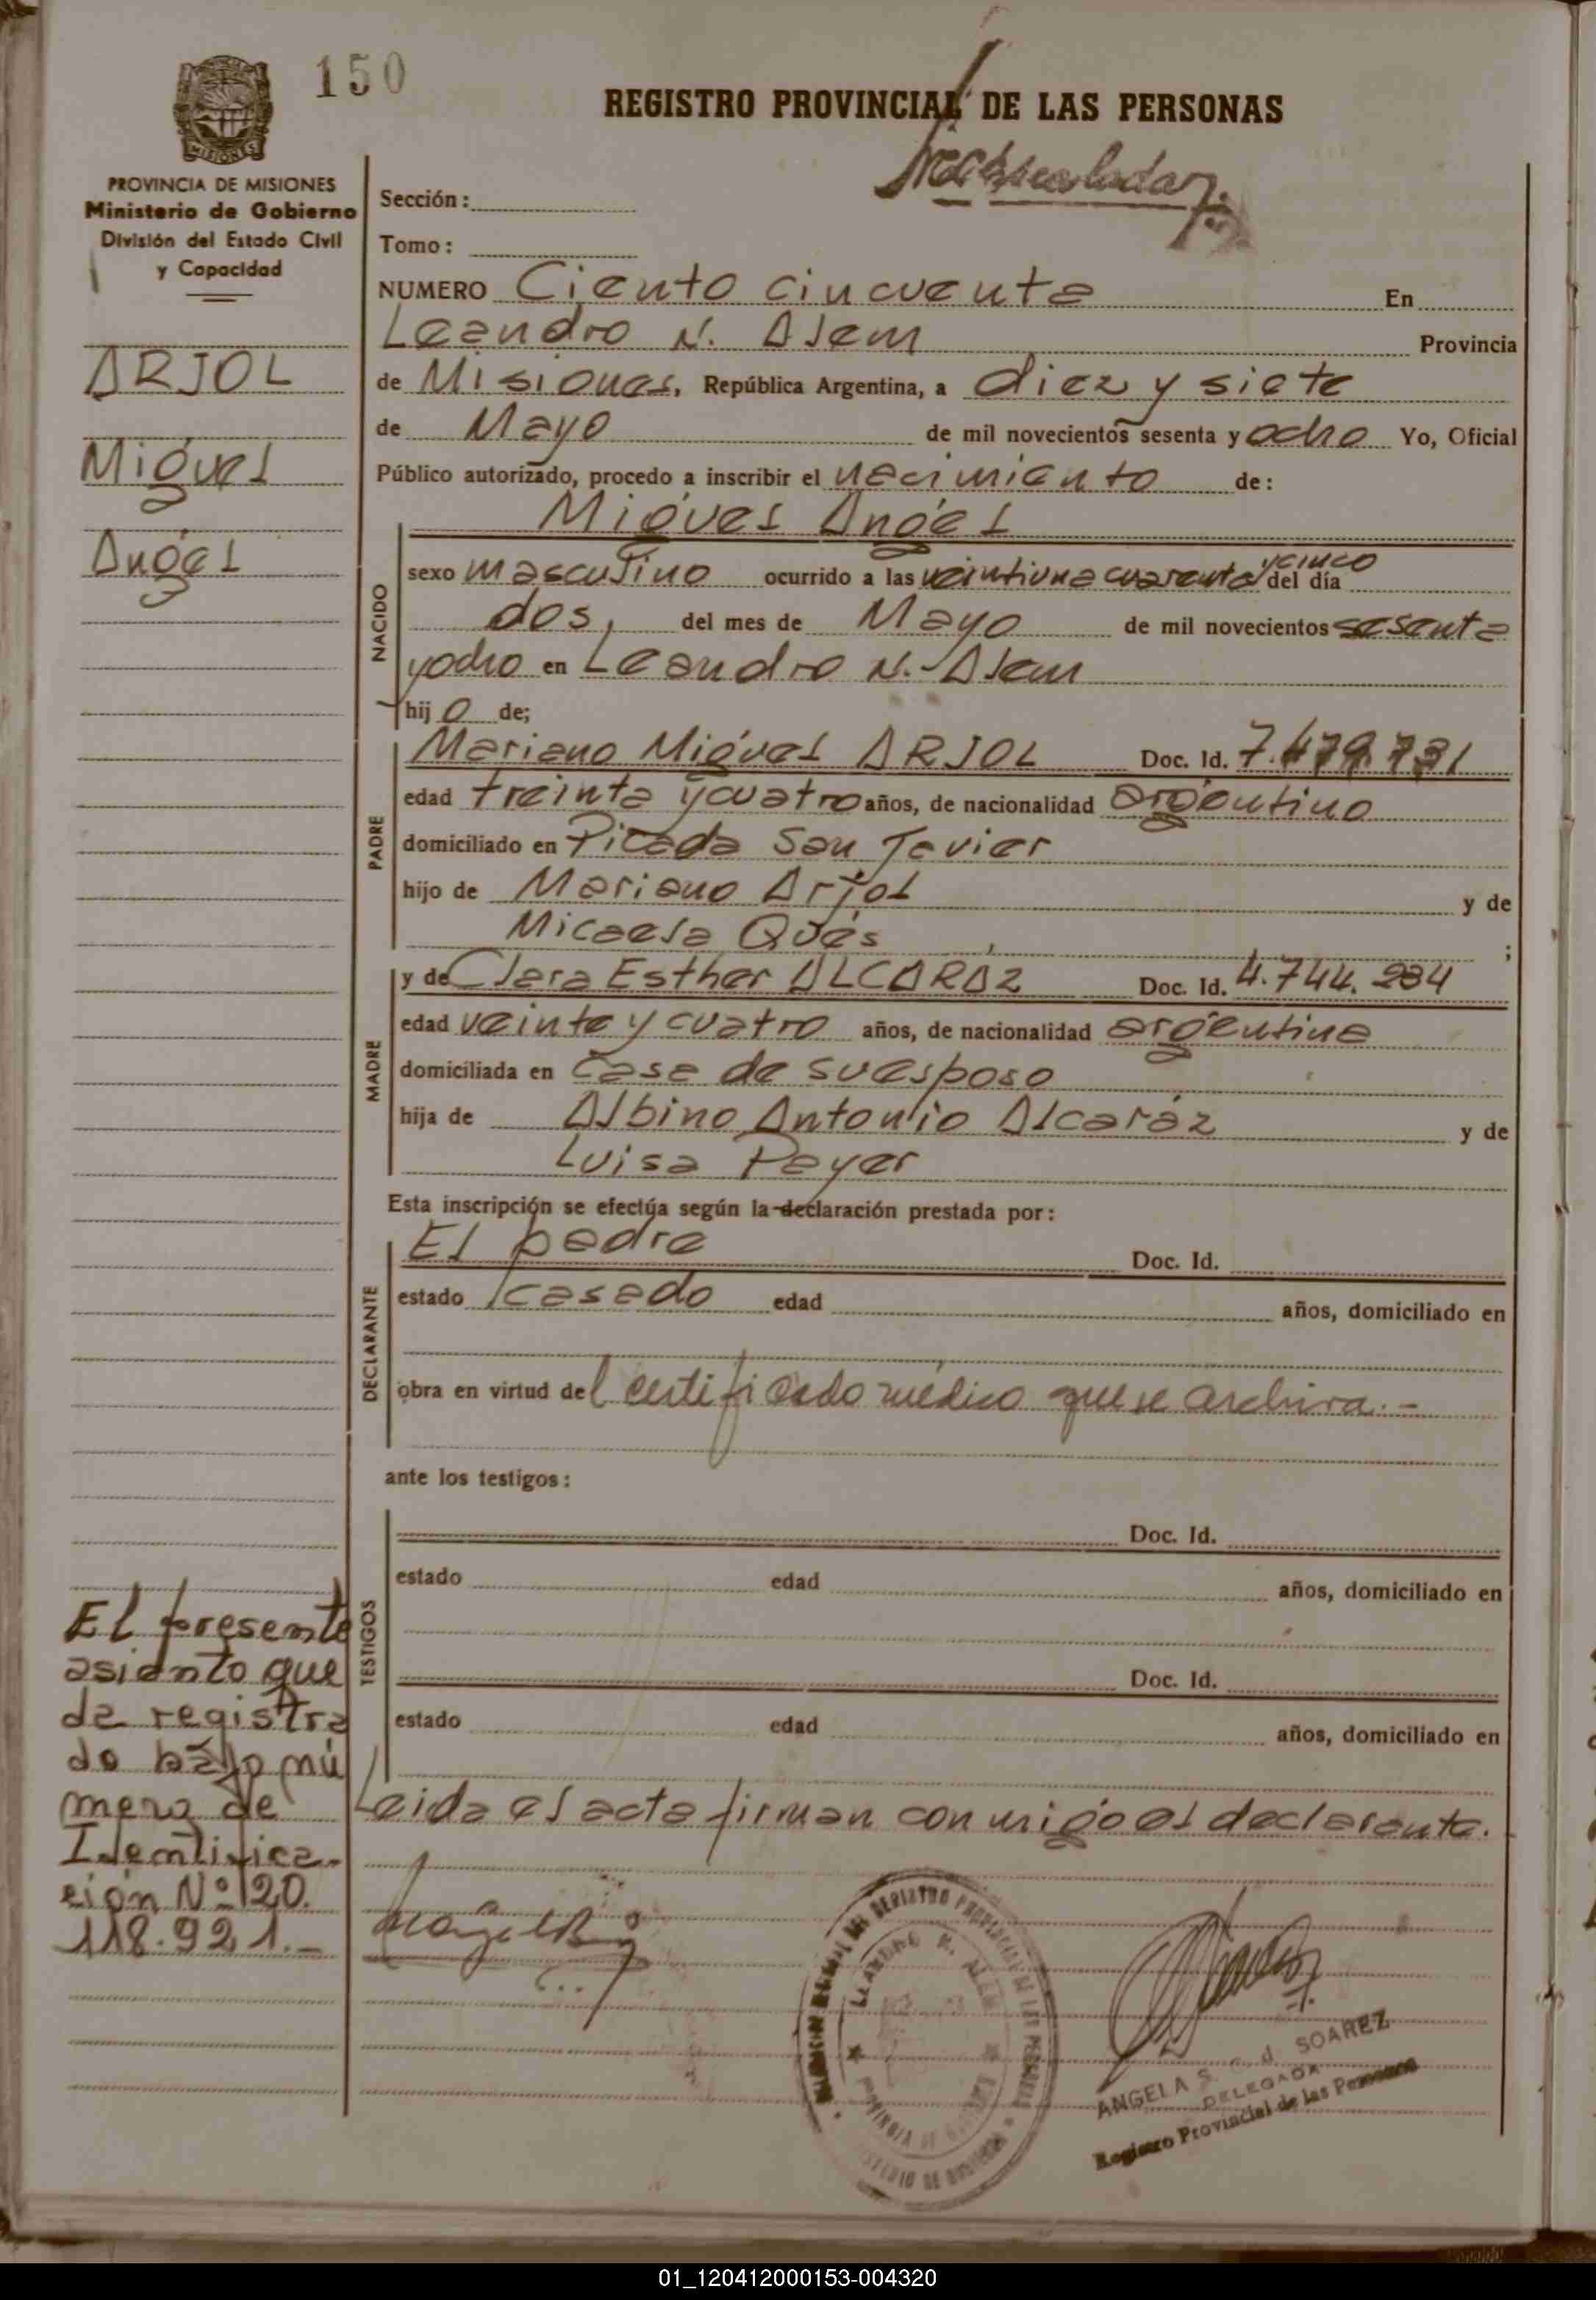 150
REGISTRO PROVINCIAL DE LAS PERSONAS
MISIONES
PROVINCIA DE MISIONES
Ministerio de Gobierno
División del Estado Civil
y Capacidad
ARJOL
Miguel
Angel
Sección:
Tomo:
NUMERO Ciento cincuenta En
Leandro N. Alem Provincia
de Misiones, República Argentina, a diez y siete
de Mayo de mil novecientos sesenta y ocho Yo, Oficial
Público autorizado, procedo a inscribir el nacimiento de:
Miguel Angel
NACIDO
sexo masculino ocurrido a las veintiuna cuarenta y cinco del día
dos, del mes de Mayo de mil novecientos sesenta
y ocho en Leandro N. Alem
hijo de;
PADRE
Mariano Miguel ARJOL Doc. Id. 7.479.731
edad treinta y cuatro años, de nacionalidad argentino
domiciliado en Picada San Javier
hijo de Mariano Arjol y de
Micaela Qués ;
MADRE
y de Clara Esther ALCARAZ Doc. Id. 4.744.234
edad veinte y cuatro años, de nacionalidad argentina
domiciliada en casa de su esposo
hija de Albino Antonio Alcaráz y de
Luisa Peyer
Esta inscripción se efectúa según la declaración prestada por:
DECLARANTE
El padre Doc. Id.
estado casado edad años, domiciliado en
obra en virtud del certificado médico que se archiva.-
ante los testigos:
TESTIGOS
Doc. Id.
estado edad años, domiciliado en
Doc. Id.
estado edad años, domiciliado en
Leida el acta firman conmigo el declarante.
El presente
asiento que
da registra
do bajo nú
mero de
Identifica-
ción Nº 20.
118.921.-
LEANDRO N. ALEM
ANGELA S. d. SOAREZ
DELEGADA
Registro Provincial de las Personas
01_120412000153-004320